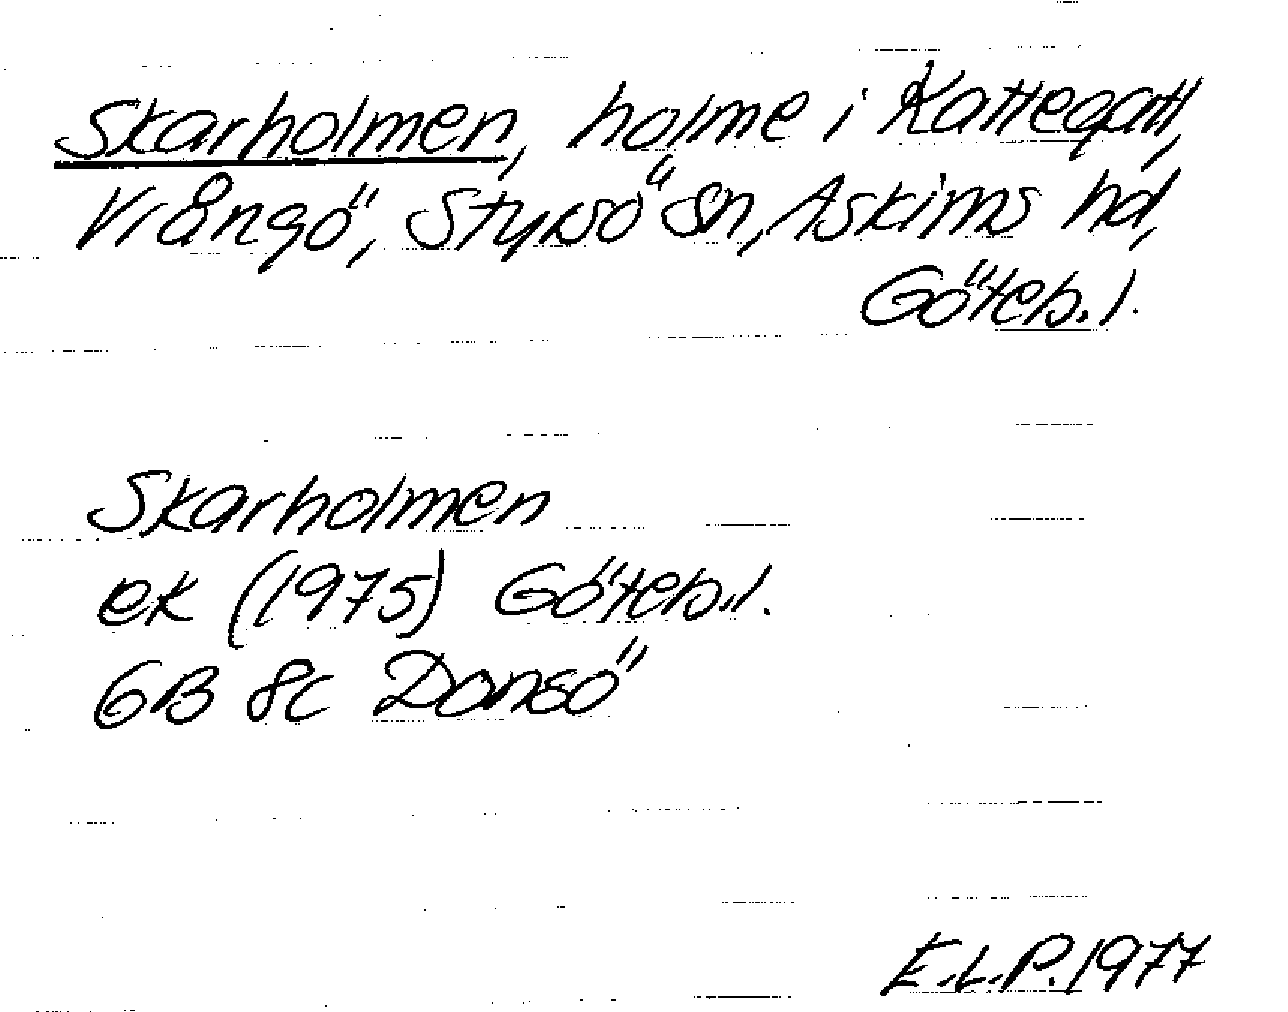 Skarholmen, holme i Kattegatt,
Vrångö, Styrsö sn, Askims hd,
Göteb. l.
Skarholmen
ek (1975) Göteb. l.
6B 8c Donsö
E.L.P. 1977